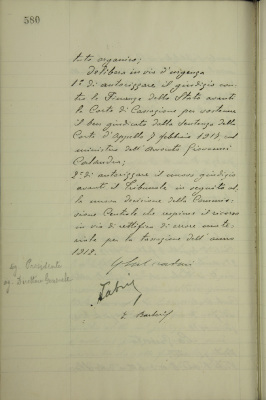 580
tuto organico;
delibera in via d'urgenza
1° di autorizzare il giudizio con-
tro le Finanze dello Stato avanti
la Corte di Cassazione per sostenere
il ben giudicato della Sentenza della
Corte d'Appello 7 febbraio 1917, col
ministero dell'Avvocato Giovanni
Calandra;
2° di autorizzare il nuovo giudizio
avanti il Tribunale in seguito al-
la nuova decisione della Commis-
sione Centrale che respinse il ricorso
in via di rettifica di errore mate-
riale per la tassazione dell'anno
1912.
Presidente
Direttore Generale